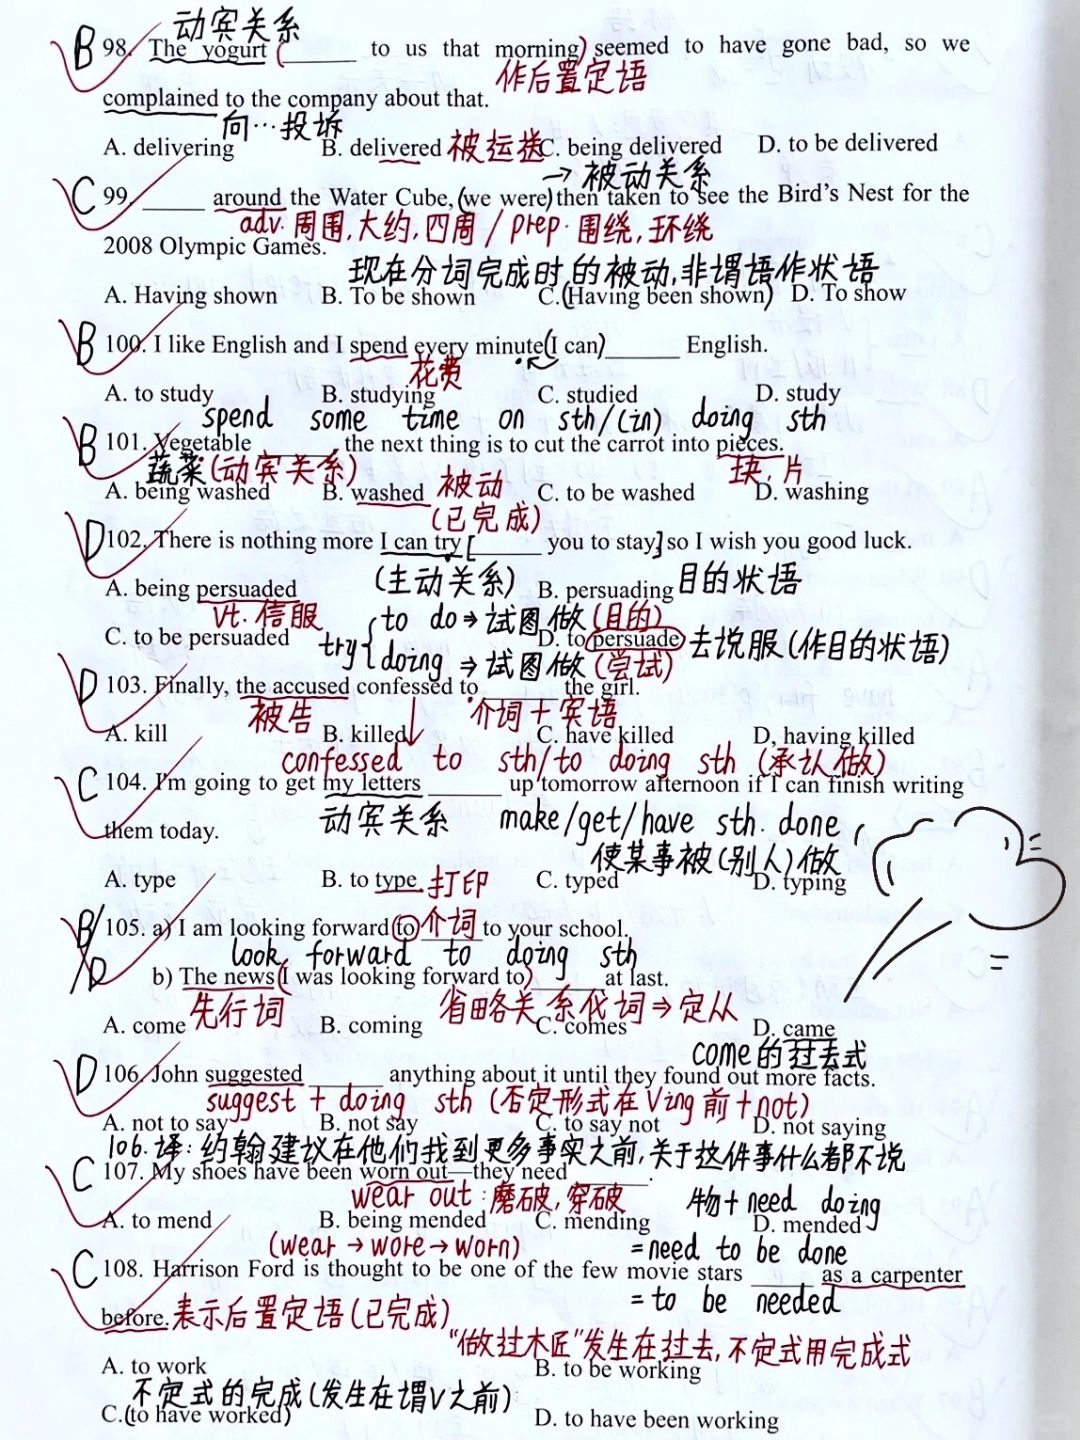 动宾关系
B 98. The yogurt (______ to us that morning) seemed to have gone bad, so we
作后置定语
complained to the company about that.
向…投诉
A. delivering B. delivered 被运送 C. being delivered D. to be delivered
→被动关系
C 99. _____ around the Water Cube, (we were) then taken to see the Bird's Nest for the
adv. 周围,大约,四周 / prep. 围绕,环绕
2008 Olympic Games.
现在分词完成时的被动,非谓语作状语
A. Having shown B. To be shown C. (Having been shown) D. To show
B 100. I like English and I spend every minute (I can) ______ English.
花费
A. to study B. studying C. studied D. study
spend some time on sth/(in) doing sth
B 101. Vegetable ______ the next thing is to cut the carrot into pieces.
蔬菜 (动宾关系) 块,片
A. being washed B. washed 被动 C. to be washed D. washing
(已完成)
D 102. There is nothing more I can try [______ you to stay,] so I wish you good luck.
A. being persuaded (主动关系) B. persuading 目的状语
vt. 信服 to do → 试图做 (目的)
C. to be persuaded try D. to persuade 去说服 (作目的状语)
doing → 试图做 (尝试)
D 103. Finally, the accused confessed to ______ the girl.
被告 介词+宾语
A. kill B. killed C. have killed D. having killed
confessed to sth/to doing sth (承认做)
C 104. I'm going to get my letters ______ up tomorrow afternoon if I can finish writing
them today. 动宾关系 make/get/have sth. done,
使某事被(别人)做
A. type B. to type 打印 C. typed D. typing
B/D 105. a) I am looking forward to 介词 ______ to your school.
look forward to doing sth
b) The news (I was looking forward to) ______ at last.
先行词 省略关系代词 ⇒ 定从
A. come B. coming C. comes D. came
come的过去式
D 106. John suggested ______ anything about it until they found out more facts.
suggest + doing sth (否定形式在Ving前+not)
A. not to say B. not say C. to say not D. not saying
106. 译: 约翰建议在他们找到更多事实之前,关于这件事什么都不说
C 107. My shoes have been worn out—they need ______.
wear out: 磨破,穿破 物+need doing
A. to mend B. being mended C. mending D. mended
(wear → wore → worn) =need to be done
C 108. Harrison Ford is thought to be one of the few movie stars _____ as a carpenter
=to be needed
before. 表示后置定语 (已完成)
“做过木匠”发生在过去,不定式用完成式
A. to work B. to be working
不定式的完成 (发生在谓V之前)
C. (to have worked) D. to have been working